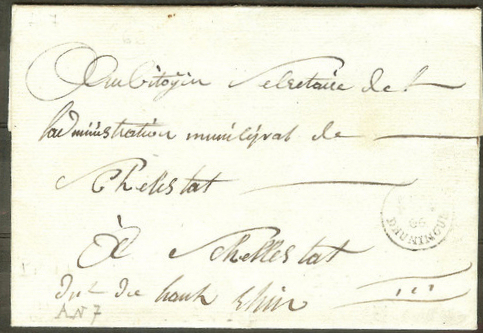 Au Citoyin Secretaire de l'
administration municipal de
Schelestat
à Schellestat
Dpt du haut Rhin
66
D'HUNINGUE
AN 7